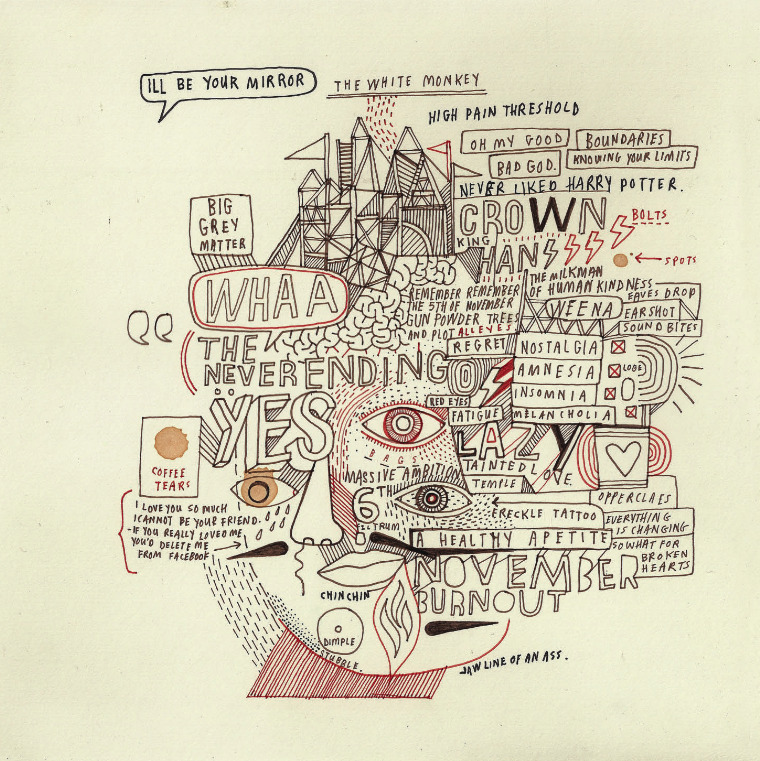 ILL BE YOUR MIRROR
THE WHITE MONKEY
HIGH PAIN THRESHOLD
OH MY GOOD
BOUNDARIES
BAD GOD.
KNOWING YOUR LIMITS
NEVER LIKED HARRY POTTER.
BIG
GREY
MATTER
CROWN
BOLTS
KING
HANS
SPOTS
THE MILKMAN
OF HUMAN KINDNESS
WHAA
REMEMBER REMEMBER
THE 5TH OF NOVEMBER
GUN POWDER TREES
AND PLOT ALL EYES
WEENA
EAVES DROP
EARSHOT
SOUND BITES
THE
NEVERENDING
REGRET
NOSTALGIA
AMNESIA
LOBE
INSOMNIA
MELANCHOLIA
RED EYES
FATIGUE
YES
BAGS
LAZY
COFFEE
TEARS
MASSIVE AMBITION
TAINTED LOVE
TEMPLE
6TH
FRECKLE TATTOO
OPPERCLAES
EVERYTHING
IS CHANGING
SO WHAT FOR
BROKEN
HEARTS
I LOVE YOU SO MUCH
I CANNOT BE YOUR FRIEND.
-IF YOU REALLY LOVED ME
YOU'D DELETE ME
FROM FACEBOOK
A HEALTHY APETITE
NOVEMBER
BURNOUT
CHINCHIN
DIMPLE
STUBBLE.
JAWLINE OF AN ASS.